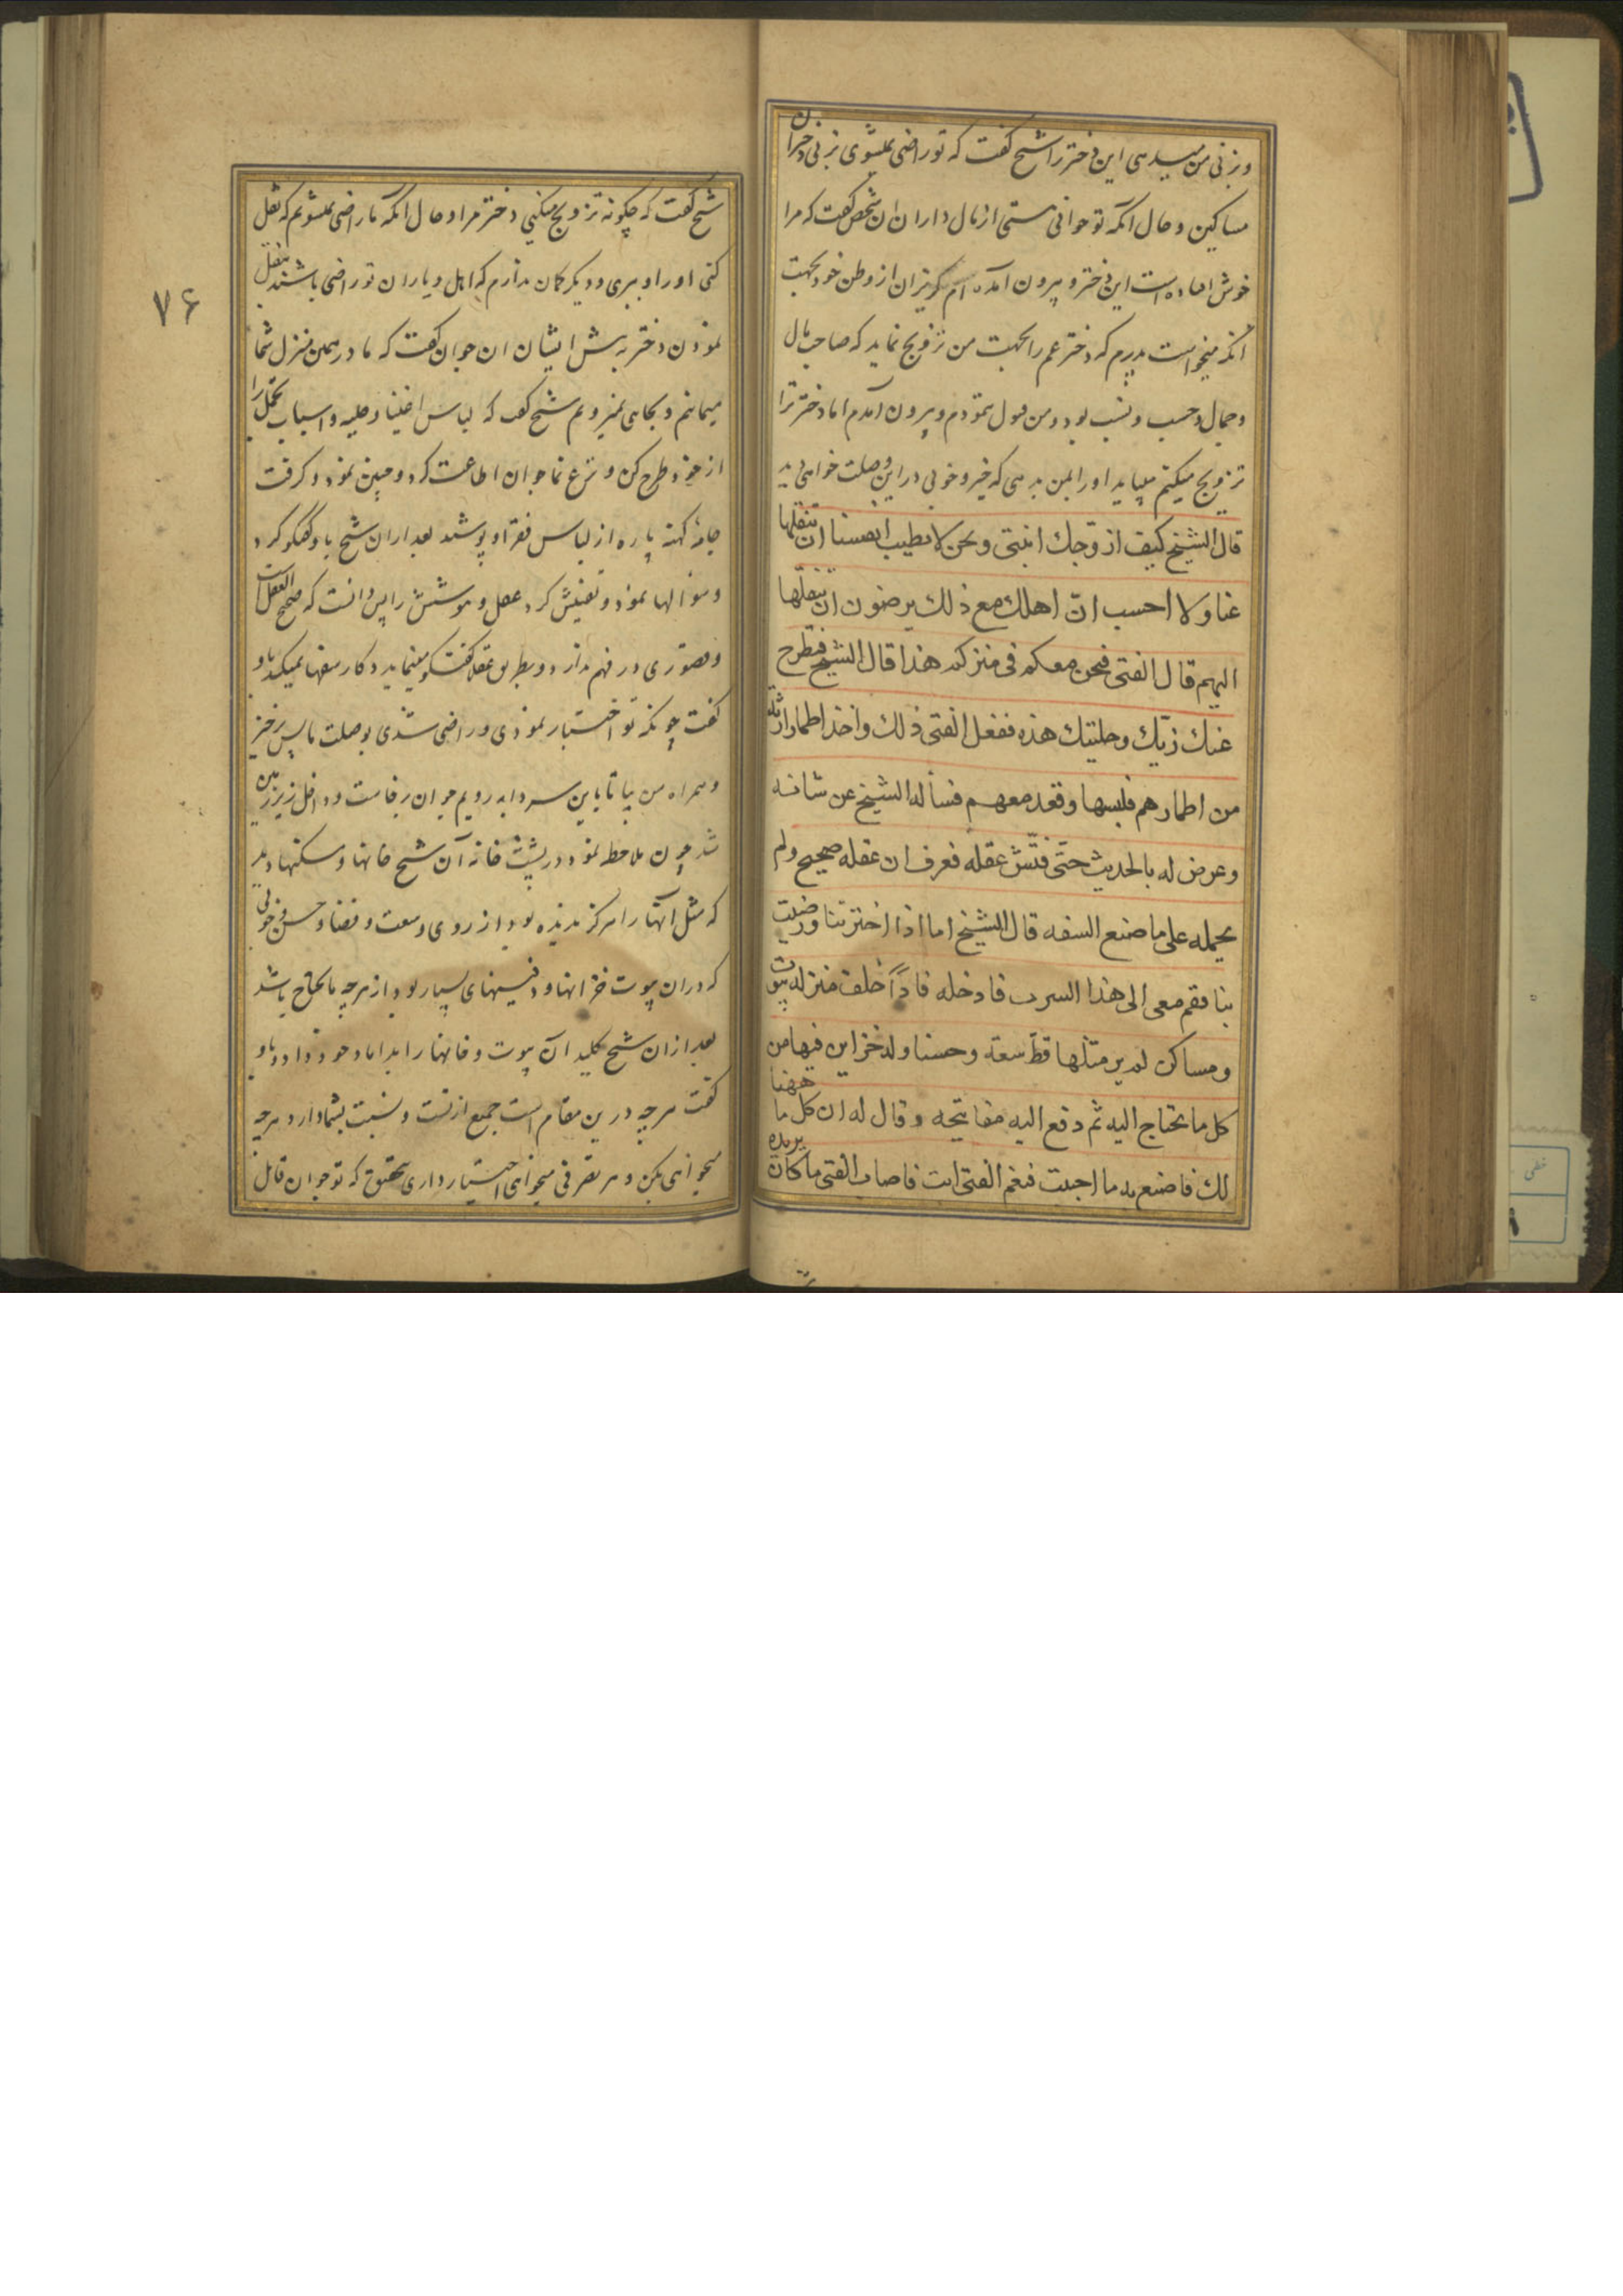 و بزنی من میدهی این دختر را شیخ گفت که تو راضی نمیشوی بزنی دختران
مساکین و حال آنکه تو جوانی هستی از مال داران ان شخص گفت که مرا
خوش افتاده است این دختر و بیرون آمده ام گریزان از وطن خود بجهت
انکه میخواست پدرم که دختر عم را بجهت من تزویج نماید که صاحب مال
و جمال و حسب و نسب بود و من قبول ننمودم و بیرون آمدم اما دختر ترا
تزویج میکنم میباید او را بمن بدهی که خیر و خوبی در این وصلت خواهی دید
قال الشیخ کیف ازوّجك ابنتی و نحن لا تطیب انفسنا ان تنقلها
عنا ولا احسب انّ اهلك مع ذلك یرضون ان تنقلها
الیهم قال الفتی فنحن معکم فی منزلکم هذا قال الشیخ فتطرح
عنك زیّك و حلیتك هذه ففعل الفتی ذلك واخذ اطمارا رثة
من اطمارهم فلبسها وقعد معهم فسأله الشیخ عن شانه
وعرض له بالحدیث حتّی فتّش عقله فعرف ان عقله صحیح ولم
یحمله علی ما صنع السفه قال الشیخ اما اذا اخترتنا ورضیت
بنا فقم معی الی هذا السرب فادخله فاذا خلف منزله بیوت
ومساکن لم یر مثلها قطّ سعة وحسنا وله خزاین فیها من
کل ما یحتاج الیه ثم دفع الیه مفاتیحه وقال له ان کل ما ههنا
لك فاصنع به ما احببت فنعم الفتی انت فاصاب الفتی ما کان یریده
شیخ گفت که چگونه تزویج میکنی دختر مرا و حال آنکه ما راضی نمیشویم که نقل
کنی او را و ببری و دیگر گمان ندارم که اهل و یاران تو راضی باشند بنقل
نمودن دختر به پیش ایشان ان جوان گفت که ما در همین منزل شما
میمانیم و بجایی نمیرویم شیخ گفت که لباس اغنیا و حلیه و اسباب تجمل را
از خود طرح کن و نزع نما جوان اطاعت کرد و چنین نمود و گرفت
جامۀ کهنه پاره از لباس فقرا و پوشید بعد از ان شیخ با و گفتگو کرد
و سؤالها نمود و تفتیش کرد عقل و هوشش را پس دانست که صحیح العقل است
و قصوری در فهم ندارد و بطریق عقلا گفتگو مینماید و کار سفها نمیکند باو
گفت چونکه تو اختیار نمودی و راضی شدی بوصلت ما پس برخیز
و همراه من بیا تا باین سردابه رویم جوان برخاست و داخل زیرزمین
شد چون ملاحظه نمود در پشت خانه آن شیخ خانها و مسکنها دید
که مثل آنها را هرگز ندیده بود از روی وسعت و فضا و حسن و خوبی
که در ان بیوت خزانها و دفینهای بسیار بود از هرچه ما یحتاج باشد
بعد از ان شیخ کلید ان بیوت و خانها را بداماد خود داد و باو
گفت هرچه درین مقام است جمیع از تست و نسبت بشما دارد هرچه
میخواهی بکن و هر تصرفی میخواهی اختیار داری بتحقیق که تو جوان قابل
۷۶
خطی